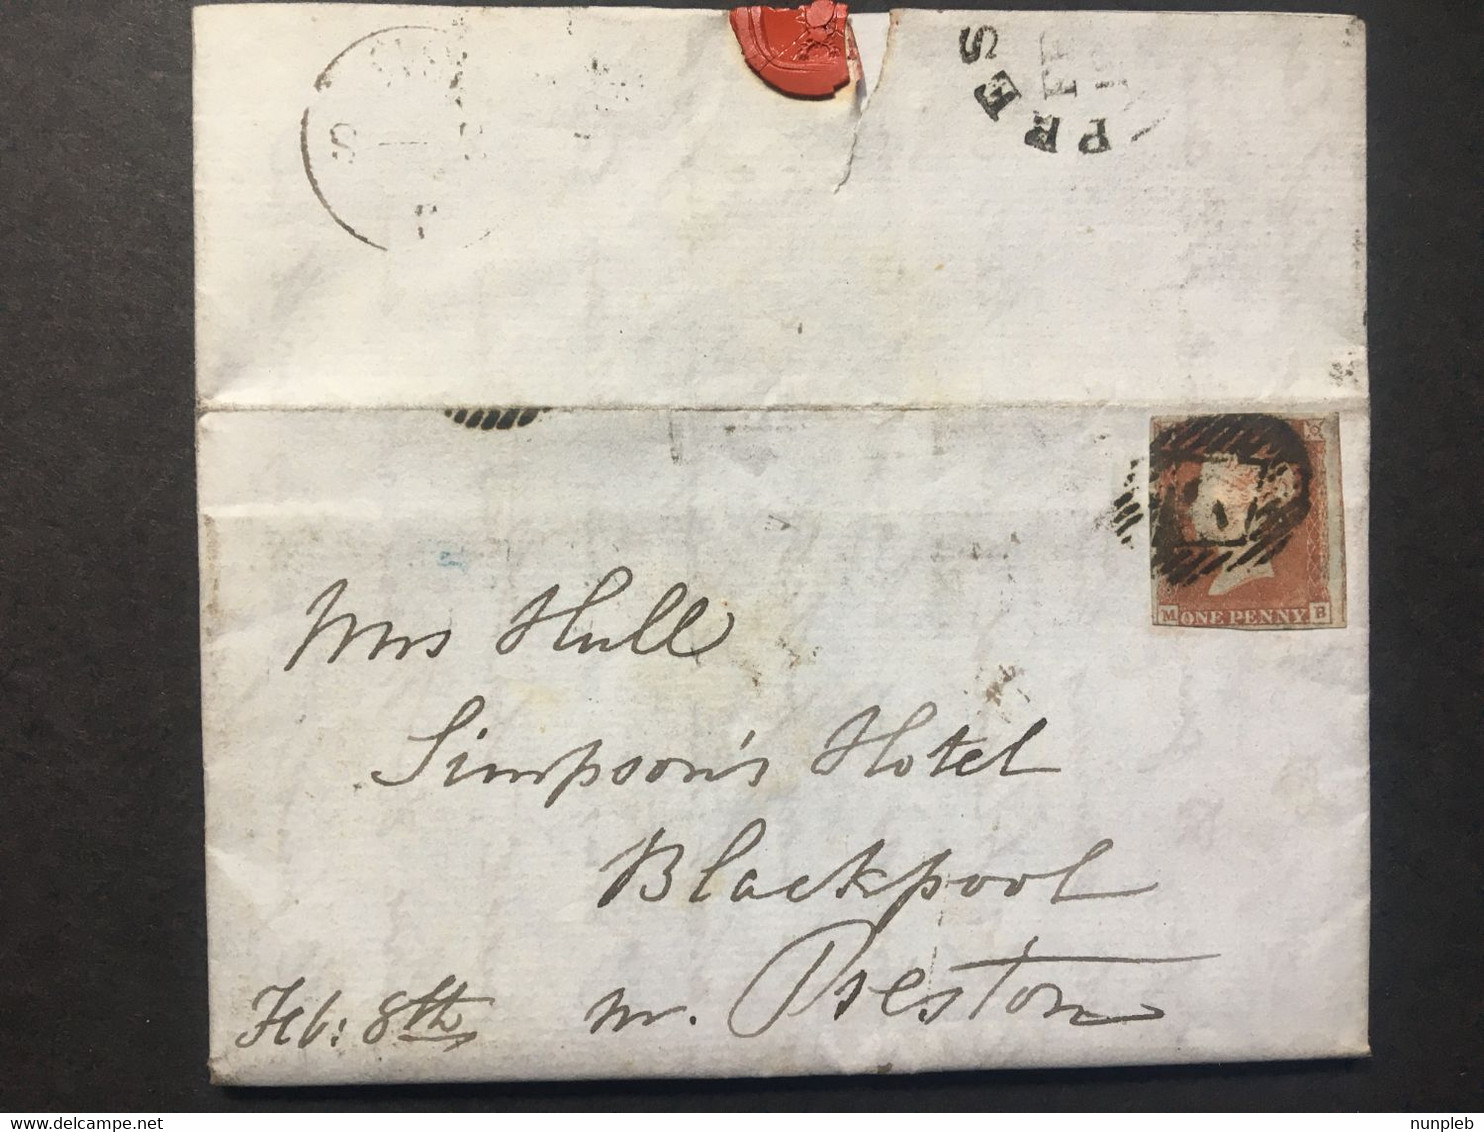 PRES
FE
M ONE PENNY. B
Mrs Hull
Simpson's Hotel
Blackpool
nr. Preston
Feb: 8th
www.delcampe.net
nunpleb